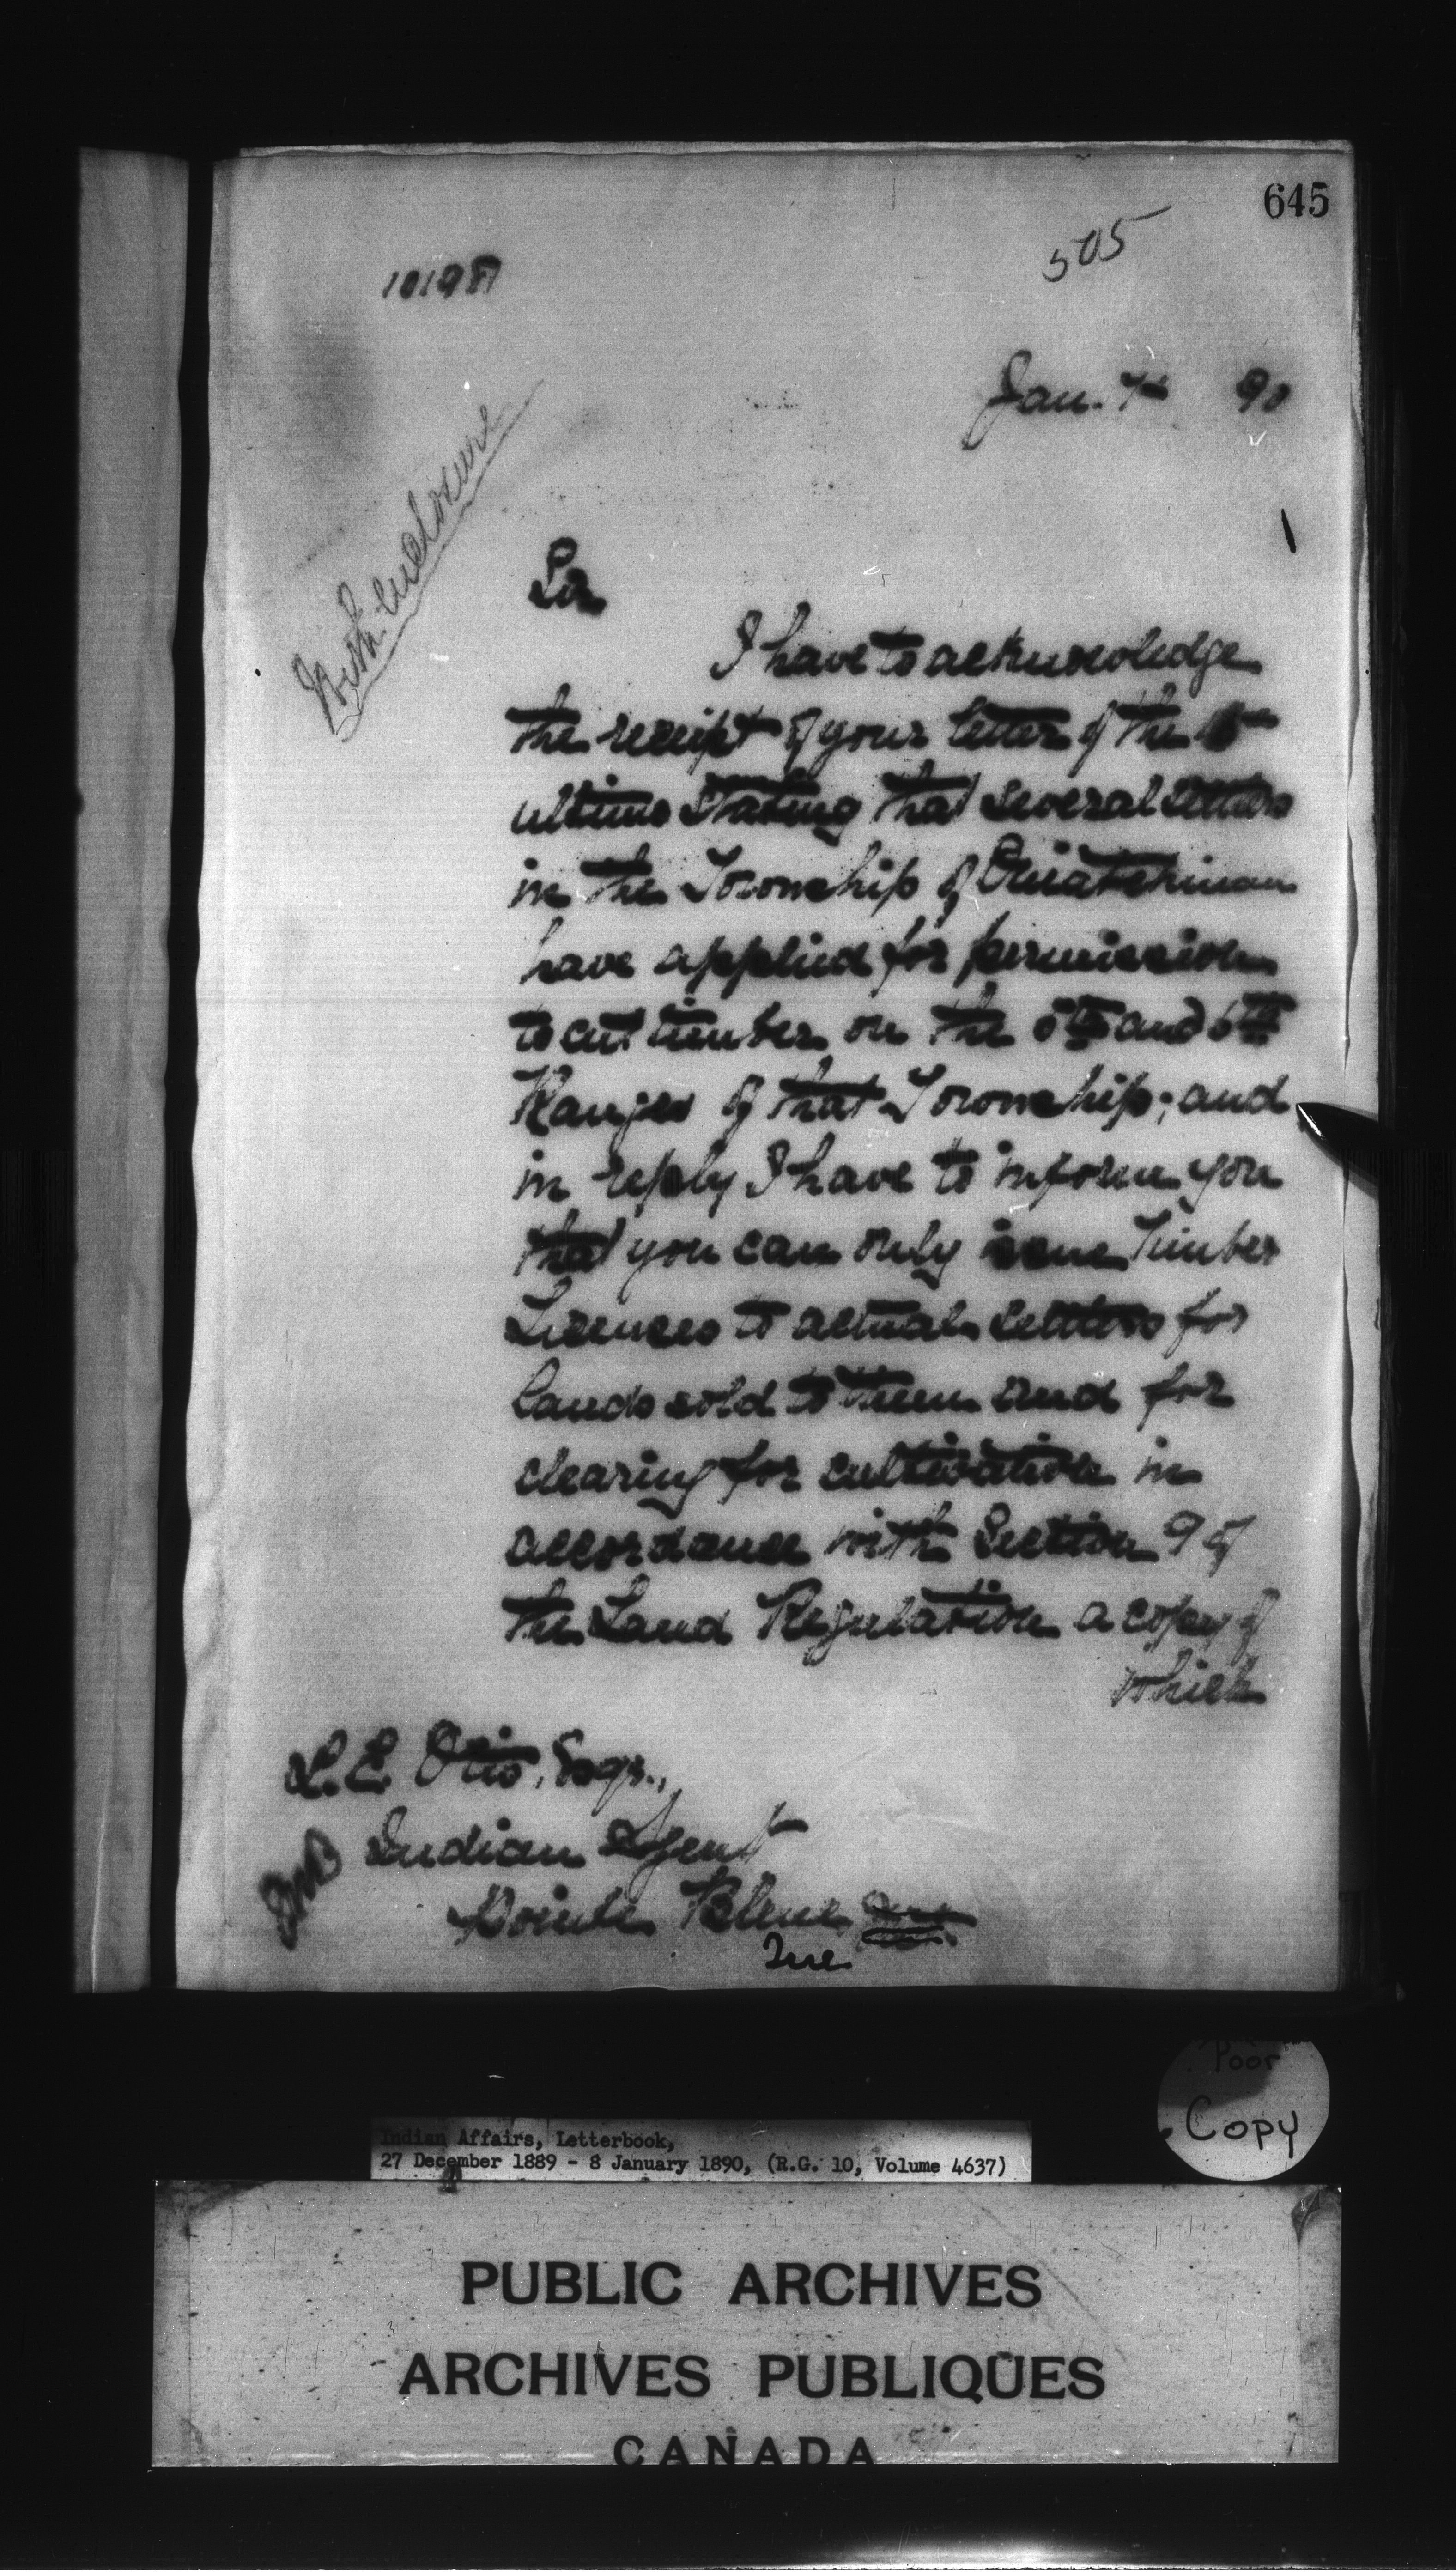 645
505
Jan. 90
With enclosure
Sir
I have to acknowledge
the receipt of your letter of the
ultimo stating that several settlers
in the Township of Ouiatchouan
have applied for permission
to cut timber on the 5th and 6th
Ranges of that Township; and
in reply I have to inform you
that you can only issue Timber
Licenses to actual settlers for
lands sold to them and for
clearing for cultivation in
accordance with Section 9 of
the Land Regulation a copy of
which
L. E. Otis, Esqr.,
Indian Agent
Pointe Bleue
Que
Poor
Copy
Indian Affairs, Letterbook,
27 December 1889 - 8 January 1890, (R.G. 10, Volume 4637)
PUBLIC ARCHIVES
ARCHIVES PUBLIQUES
CANADA